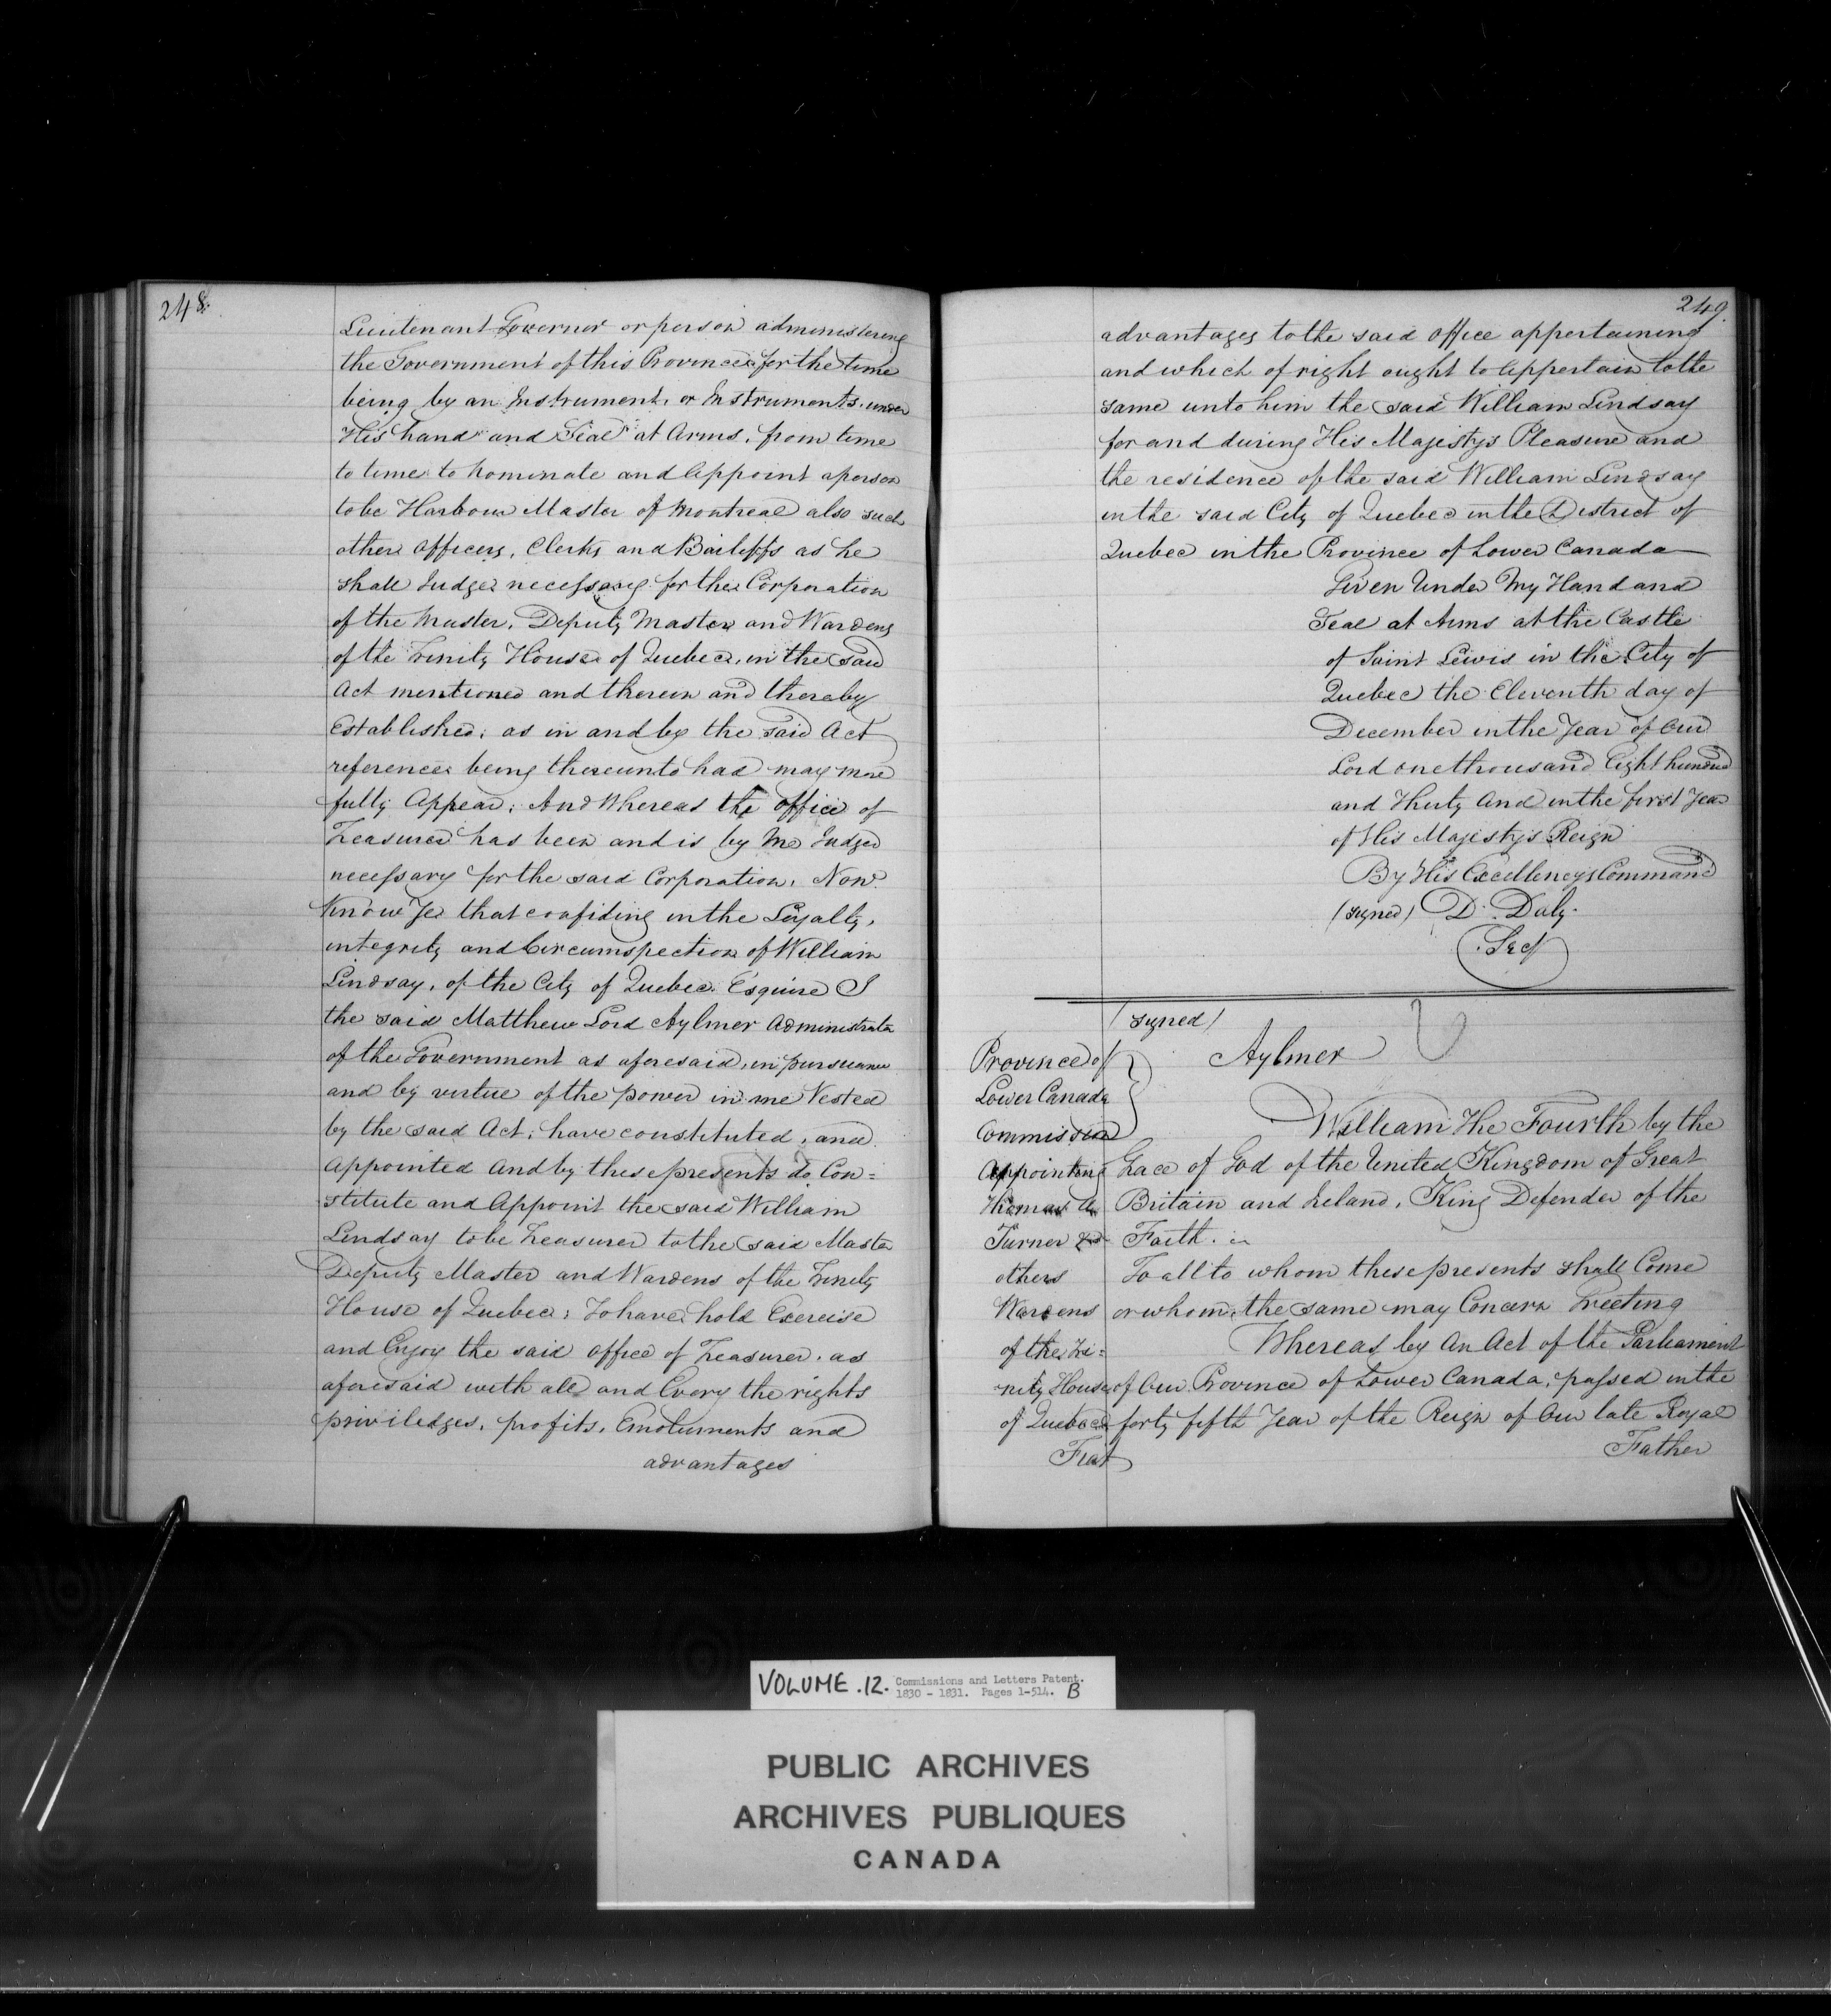 248.
Lieutenant Governor or person administering
the Government of this Province for the time
being by an Instrument, or Instruments, under
His hand and Seal at Arms, from time
to time to nominate and Appoint a person
to be Harbour Master of Montreal also such
other officers, Clerks and Bailiffs as he
shall Judge necessary for the Corporation
of the Master, Deputy Master and Wardens
of the Trinity House of Quebec, in the said
Act mentioned and therein and thereby
Established; as in and by the said Act
reference being thereunto had may more
fully Appear; And Whereas the office of
Treasurer has been and is by me Judged
necessary for the said Corporation, Now
Know Ye that confiding in the Loyalty,
integrity and Circumspection of William
Lindsay, of the City of Quebec Esquire I
the said Matthew Lord Aylmer Administrator
of the Government as aforesaid, in pursuance
and by virtue of the power in me Vested
by the said Act, have constituted, and
Appointed And by these presents do Con=
stitute and Appoint the said William
Lindsay to be Treasurer to the said Master
Deputy Master and Wardens of the Trinity
House of Quebec; To have hold Exercise
and Enjoy the said office of Treasurer, as
aforesaid with all and Every the rights
priviledges, profits, Emoluments and
advantages
249.
advantages to the said office appertaining
and which of right ought to Appertain to the
same unto him the said William Lindsay
for and during His Majestys Pleasure and
the residence of the said William Lindsay
in the said City of Quebec in the District of
Quebec in the Province of Lower Canada
Given Under My Hand and
Seal at Arms at the Castle
of Saint Lewis in the City of
Quebec the Eleventh day of
December in the Year of Our
Lord one thousand Eight hundred
and Thirty And in the first Year
of His Majestys Reign
By His Excellencys Command
(signed) D. Daly.
Secy
(signed)
Aylmer
Province of
Lower Canada
Commission
Appointing
Thomas A
Turner &
others
Wardens
of the Tri=
nity House
of Quebec
Fiat
William The Fourth by the
Grace of God of the United Kingdom of Great
Britain and Ireland, King Defender of the
Faith.
To all to whom these presents shall Come
or whom the same may Concern Greeting
Whereas by An Act of the Parliament
of Our Province of Lower Canada, passed in the
forty fifth Year of the Reign of Our late Royal
Father
VOLUME .12. Commissions and Letters Patent.
1830 - 1831. Pages 1-514. B
PUBLIC ARCHIVES
ARCHIVES PUBLIQUES
CANADA